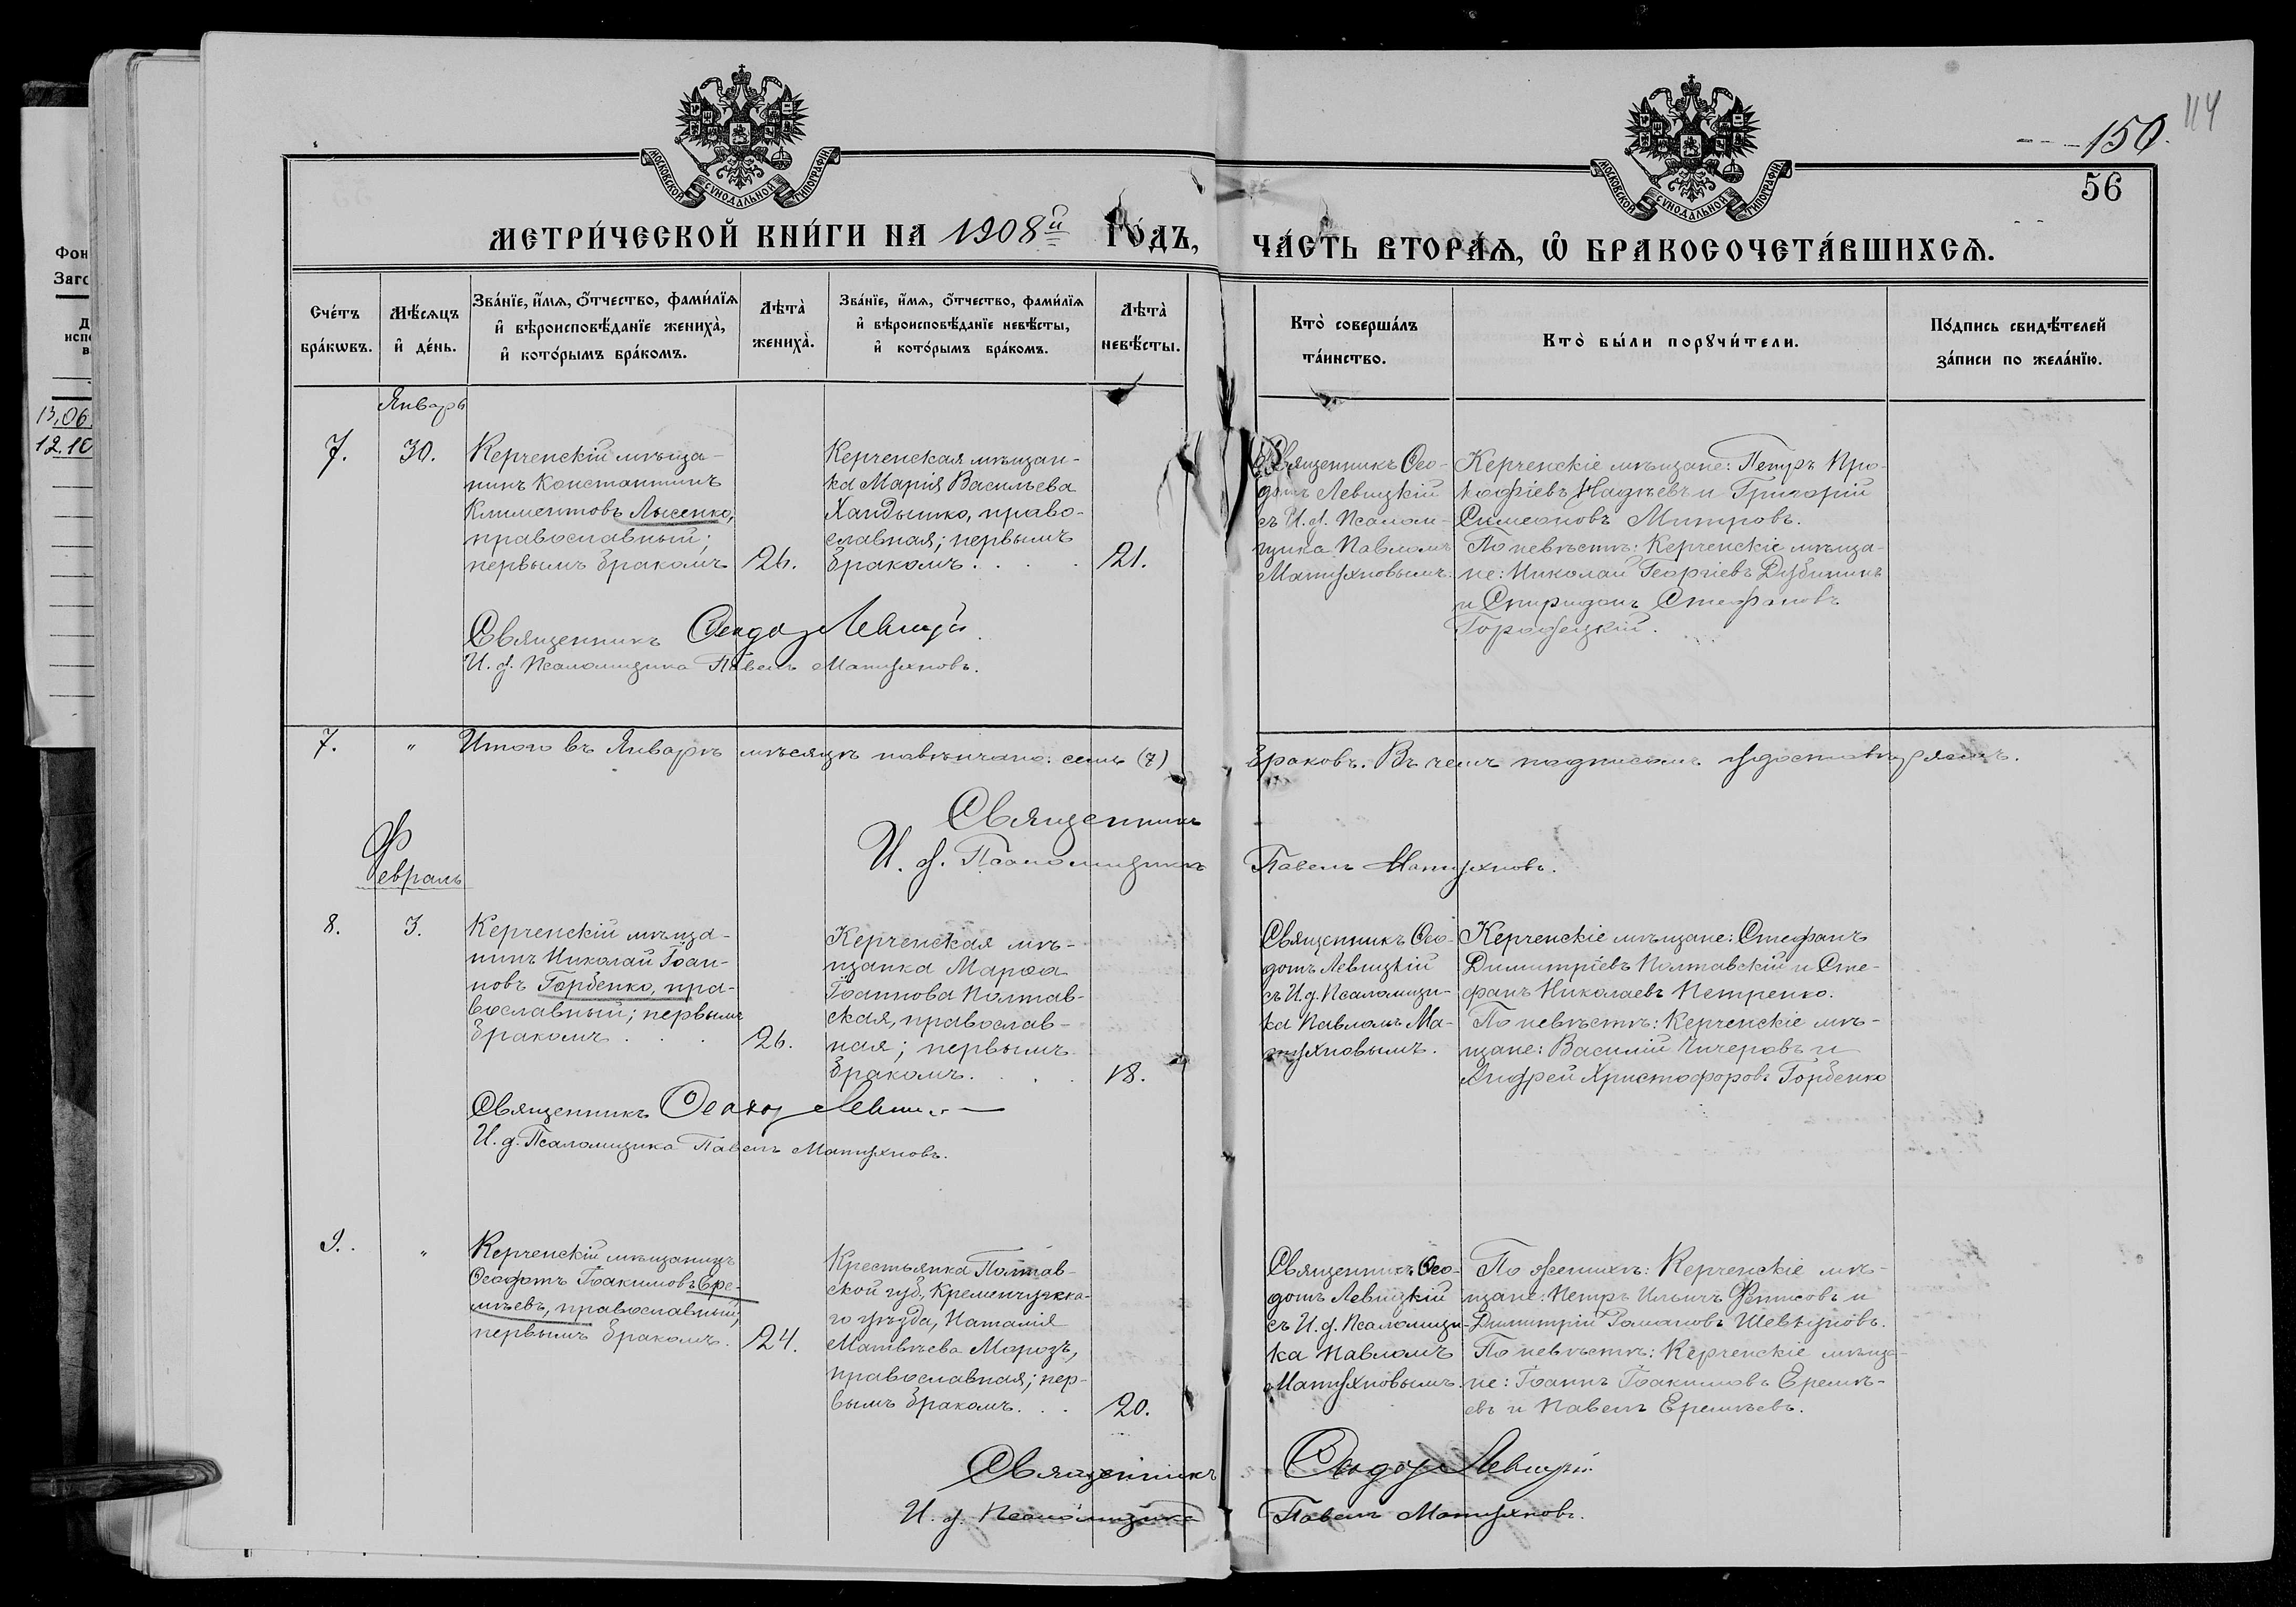 114
150.
56
МОСКОВСКОЙ СУНОДАЛЬНОЙ ТИПОГРАФІИ.
МОСКОВСКОЙ СУНОДАЛЬНОЙ ТИПОГРАФІИ.
МЕТРИ́ЧЕСКОЙ КНИ́ГИ НА 1908й ГО́ДЪ,
ЧА́СТЬ ВТОРА́Я, Ѡ БРАКОСОЧЕТА́ВШИХСЯ.
Фон
Заго
13.06
12.10
Сче́тъ
бра́кѡвъ.
Мѣ́сяцъ
и҆ де́нь.
Зва́нїе, и҆́мя, ѻ҆́тчество, фами́лїя
и҆ вѣроисповѣ́данїе жениха̀,
и҆ кото́рымъ бра́комъ.
Лѣта̀
жениха̀.
Зва́нїе, и҆́мя, ѻ҆́тчество, фами́лїя
и҆ вѣроисповѣ́данїе невѣ́сты,
и҆ кото́рымъ бра́комъ.
Лѣта̀
невѣ́сты.
Кто̀ соверша́лъ
та́инство.
Кто̀ бы́ли порꙋчи́тели.
По́дпись свидѣ́телей
за́писи по жела́нїю.
Январь
7.
30.
Керченскій мѣща-
нинъ Константинъ
Климентовъ Лысенко,
православный;
первымъ бракомъ
26.
Керченская мѣщан-
ка Марія Васильева
Хандышко, право-
славная; первымъ
бракомъ. . . .
21.
Священникъ Ѳео-
дотъ Левицкій
съ И. д. Псалом-
щика Павломъ
Матухновымъ.
Керченскіе мѣщане: Петръ Про-
кофіевъ Надѣевъ и Григорій
Симеоновъ Митровъ.
По невѣстѣ: Керченскіе мѣща-
не: Николай Георгіевъ Дубининъ
и Спиридонъ Стефановъ
Городецкій.
Священникъ Ѳеодотъ Левицкій
И. д. Псаломщика Павелъ Матухновъ.
7. " Итого въ Январѣ мѣсяцѣ повѣнчано: семь (7)
браковъ. Въ чемъ подписомъ удостовѣряемъ.
Священникъ
И. д. Псаломщика Павелъ Матухновъ.
Февраль
8.
3.
Керченскій мѣща-
нинъ Николай Іоан-
новъ Горбенко, пра-
вославный; первымъ
бракомъ . . .
26.
Керченская мѣ-
щанка Марѳа
Іоаннова Полтав-
ская, православ-
ная; первымъ
бракомъ. . . .
18.
Священникъ Ѳео-
дотъ Левицкій
съ И. д. Псаломщи-
ка Павломъ Ма-
тухновымъ.
Керченскіе мѣщане: Стефанъ
Димитріевъ Полтавскій и Сте-
фанъ Николаевъ Петренко.
По невѣстѣ: Керченскіе мѣ-
щане: Василій Чичеровъ и
Андрей Христофоровъ Горбенко
Священникъ Ѳеодотъ Левицкій
И. д. Псаломщика Павелъ Матухновъ.
9.
"
Керченскій мѣщанинъ
Ѳеофотъ Іоакимовъ Ере-
мѣевъ, православный,
первымъ бракомъ.
24.
Крестьянка Полтав-
ской губ., Кременчугска-
го уѣзда, Наталія
Матвѣева Морозъ,
православная; пер-
вымъ бракомъ. . .
20.
Священникъ Ѳео-
дотъ Левицкій
съ И. д. Псаломщи-
ка Павломъ
Матухновымъ.
По женихѣ: Керченскіе мѣ-
щане: Петръ Ильичъ Фетисовъ и
Димитрій Романовъ Шевкуновъ.
По невѣстѣ: Керченскіе мѣща-
не: Іоаннъ Іоакимовъ Еремѣ-
евъ и Павелъ Еремѣевъ.
Священникъ Ѳеодотъ Левицкій
И. д. Псаломщика Павелъ Матухновъ.